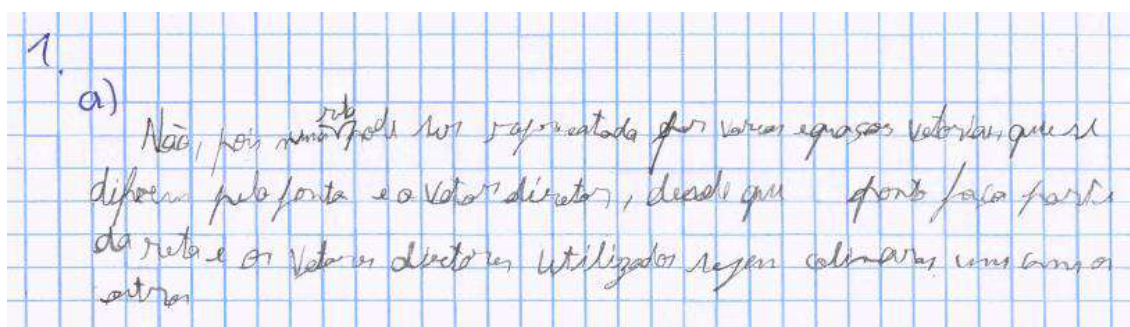 1.
a)
Não, pois uma reta pode ser representada por varias equações vetoriais, que se
diferem pelo ponto e o vetor diretor, desde que ponto faça parte
da reta e os vetores diretores utilizados sejam colineares uns com os
outros